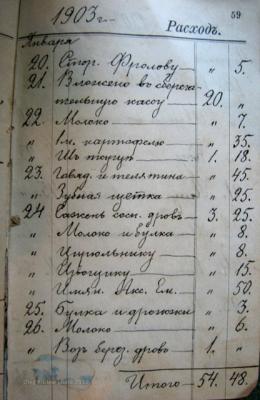 59
1903 г.
Расходъ.
Января
20. Стор. Фролову " 5.
21. Вложено въ сберега-
тельную кассу 20. "
22. Молоко " 7.
" 1 м. картофелю " 35.
" 1. 18.
23. Говяд. и телятина " 45.
" Зубная щетка " 25.
24. Сажень сосн. дровъ 3. 25.
" Молоко и булка " 8.
" Цирюльнику " 8.
" Извощику " 15.
" Имян. Ник. Ем. " 50.
25. Булка и дрожжи " 3.
26. Молоко " 6.
" Возъ берез. дровъ 1. "
Итого 54. 48.